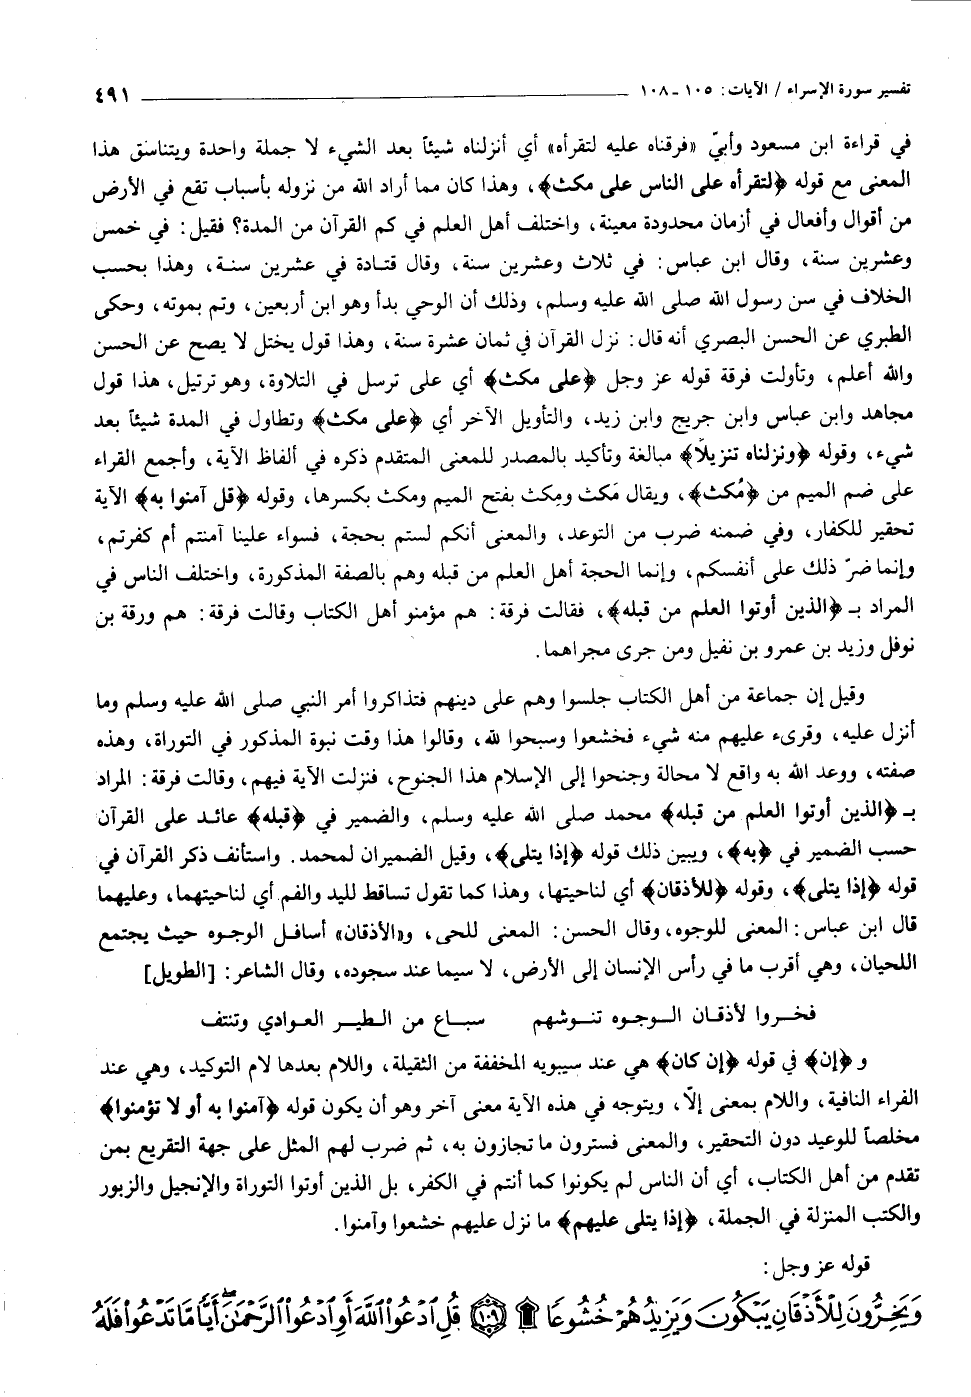 تفسير سورة الإسراء / الآيات: ١٠٥ - ١٠٨
٤٩١
في قراءة ابن مسعود وأبيّ «فرقناه عليه لتقرأه» أي أنزلناه شيئاً بعد الشيء لا جملة واحدة ويتناسق هذا
المعنى مع قوله ﴿لتقرأه على الناس على مكث﴾، وهذا كان مما أراد الله من نزوله بأسباب تقع في الأرض
من أقوال وأفعال في أزمان محدودة معينة، واختلف أهل العلم في كم القرآن من المدة؟ فقيل: في خمس
وعشرين سنة، وقال ابن عباس: في ثلاث وعشرين سنة، وقال قتادة في عشرين سنة، وهذا بحسب
الخلاف في سن رسول الله صلى الله عليه وسلم، وذلك أن الوحي بدأ وهو ابن أربعين، وتم بموته، وحكى
الطبري عن الحسن البصري أنه قال: نزل القرآن في ثمان عشرة سنة، وهذا قول يختل لا يصح عن الحسن
والله أعلم، وتأولت فرقة قوله عز وجل ﴿على مكث﴾ أي على ترسل في التلاوة، وهو ترتيل، هذا قول
مجاهد وابن عباس وابن جريج وابن زيد، والتأويل الآخر أي ﴿على مكث﴾ وتطاول في المدة شيئاً بعد
شيء، وقوله ﴿ونزلناه تنزيلاً﴾ مبالغة وتأكيد بالمصدر للمعنى المتقدم ذكره في ألفاظ الآية، وأجمع القراء
على ضم الميم من ﴿مُكث﴾، ويقال مَكث ومِكث بفتح الميم ومكث بكسرها، وقوله ﴿قل آمنوا به﴾ الآية
تحقير للكفار، وفي ضمنه ضرب من التوعد، والمعنى أنكم لستم بحجة، فسواء علينا آمنتم أم كفرتم،
وإنما ضرّ ذلك على أنفسكم، وإنما الحجة أهل العلم من قبله وهم بالصفة المذكورة، واختلف الناس في
المراد بـ ﴿الذين أوتوا العلم من قبله﴾، فقالت فرقة: هم مؤمنو أهل الكتاب وقالت فرقة: هم ورقة بن
نوفل وزيد بن عمرو بن نفيل ومن جرى مجراهما.
وقيل إن جماعة من أهل الكتاب جلسوا وهم على دينهم فتذاكروا أمر النبي صلى الله عليه وسلم وما
أنزل عليه، وقرىء عليهم منه شيء فخشعوا وسبحوا لله، وقالوا هذا وقت نبوة المذكور في التوراة، وهذه
صفته، ووعد الله به واقع لا محالة وجنحوا إلى الإسلام هذا الجنوح، فنزلت الآية فيهم، وقالت فرقة: المراد
بـ ﴿الذين أوتوا العلم من قبله﴾ محمد صلى الله عليه وسلم، والضمير في ﴿قبله﴾ عائد على القرآن
حسب الضمير في ﴿به﴾، ويبين ذلك قوله ﴿إذا يتلى﴾، وقيل الضميران لمحمد. واستأنف ذكر القرآن في
قوله ﴿إذا يتلى﴾، وقوله ﴿للأذقان﴾ أي لناحيتها، وهذا كما تقول تساقط لليد والفم أي لناحيتهما، وعليهما
قال ابن عباس: المعنى للوجوه، وقال الحسن: المعنى للحى، و«الأذقان» أسافل الوجوه حيث يجتمع
اللحيان، وهي أقرب ما في رأس الإنسان إلى الأرض، لا سيما عند سجوده، وقال الشاعر: [الطويل]
فخروا لأذقان الوجوه تنوشهم سباع من الطير العوادي وتنتف
و ﴿إن﴾ في قوله ﴿إن كان﴾ هي عند سيبويه المخففة من الثقيلة، واللام بعدها لام التوكيد، وهي عند
الفراء النافية، واللام بمعنى إلّا، ويتوجه في هذه الآية معنى آخر وهو أن يكون قوله ﴿آمنوا به أو لا تؤمنوا﴾
مخلصاً للوعيد دون التحقير، والمعنى فسترون ما تجازون به، ثم ضرب لهم المثل على جهة التقريع بمن
تقدم من أهل الكتاب، أي أن الناس لم يكونوا كما أنتم في الكفر، بل الذين أوتوا التوراة والإنجيل والزبور
والكتب المنزلة في الجملة، ﴿إذا يتلى عليهم﴾ ما نزل عليهم خشعوا وآمنوا.
قوله عز وجل:
وَيَخِرُّونَ لِلْأَذْقَانِ يَبْكُونَ وَيَزِيدُهُمْ خُشُوعًا ۩ ﴿١٠٩﴾ قُلِ ادْعُوا اللَّهَ أَوِ ادْعُوا الرَّحْمَٰنَ ۖ أَيًّا مَّا تَدْعُوا فَلَهُ